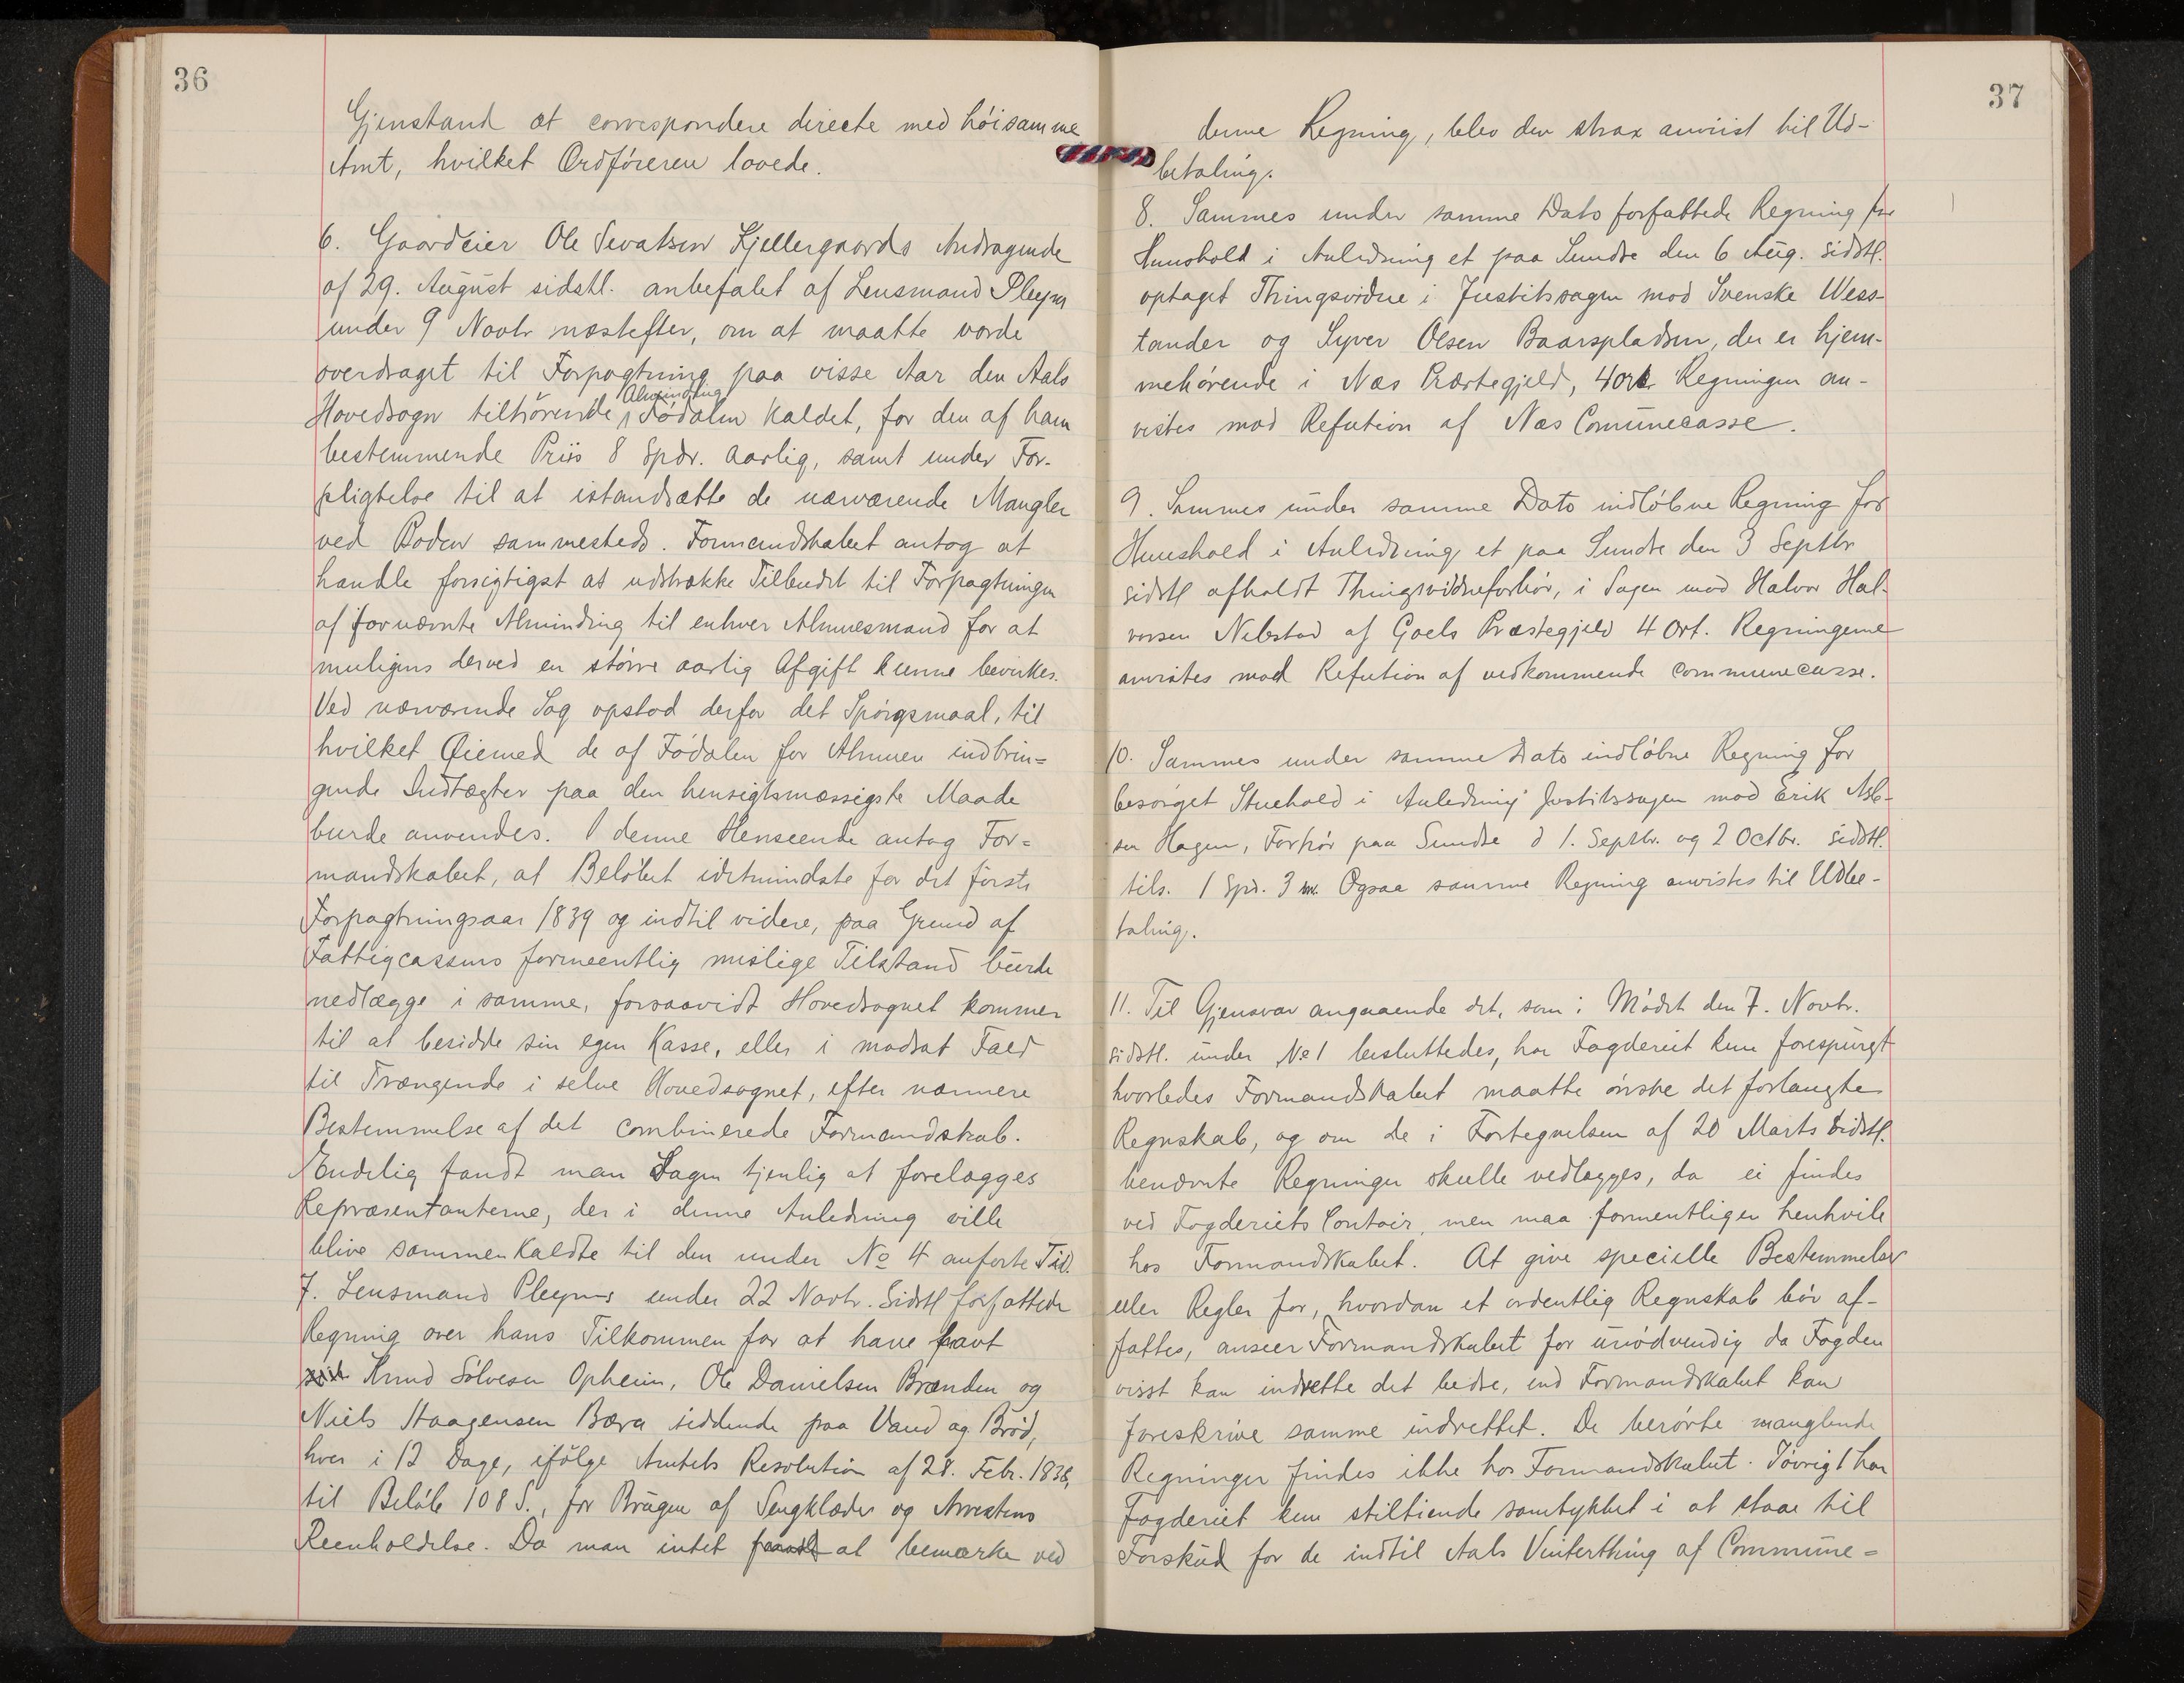 36
Gjenstand at correspondere directe med höisamme
Amt, hvilket Ordföreren lovede.
6. Gaardeier Ole Sevatsen Kjellergaards Andragende
af 29. August sidstl. anbefalet af Lensmand Pleym
under 9 Novbr næstefter, om at maatte vorde
overdraget til Forpagtning paa visse Aar den Aals
Hovedsogn tilhörende Alminding Födalen kaldet, for den af ham
bestemmende Priis 8 Spdr. aarlig, samt under For-
pligtelse til at istandsætte de nærværende Mangler
ved Boden sammesteds. Formandskabet antog at
handle forsigtigst at udstrække Tilbudet til Forpagtningen
af fornævnte Alminding til enhver Almuesmand for at
muligens derved en större aarlig Afgift kunne bevirkes.
Ved nærværende Sag opstod derfor det Spörgsmaal, til
hvilket Øiemed de af Födalen for Almuen indbrin=
gende Indtægter paa den hensigtsmæssigste Maade
burde anvendes. I denne Henseende antog For=
mandskabet, at Belöbet idetmindste for det förste
Forpagtningsaar 1839 og indtil videre, paa Grund af
Fattigcassens formeentlig mislige Tilstand burde
nedlægge i samme, forsaavidt Hovedsognet kommer
til at besidde sin egen Kasse, eller i modsat Fald
til Trængende i selve Hovedsognet, efter nærmere
Bestemmelse af det combinerede Formandskab.
Endelig fandt man Sagen tjenlig at forelægges
Repræsentanterne, der i denne Anledning ville
blive sammenkaldte til den under No 4 anförte Tid.
7. Lensmand Pleyms under 22 Novbr. Sidstl forfattede
Regning over hans Tilkommen for at have havt
Knud Sölvesen Opheim, Ole Danielsen Brænden og
Niels Haagensen Bæra siddende paa Vand og Bröd,
hver i 12 Dage, ifölge Amtets Resolution af 28. Febr. 1838,
til Belöb 108 S., for Brugen af Sengklæder og Arrestens
Reenholdelse. Da man intet fandt at bemærke ved
37
denne Regning, blev den strax anviist til Ud-
betaling.
8. Sammes under samme Dato forfattede Regning for
Huushold i Anledning et paa Sundre den 6 Aug. sidstl.
optaget Thingsvidne i Justitssagen mod Svenske Wess-
tander og Syver Olsen Baarspladsen, der er hjem-
mehörende i Næs Præstegjeld, 4 ort. Regningen an-
vistes mod Refution af Næs Comünecasse.
9. Sammes under samme Dato indlöbne Regning for
Huushold i Anledning et paa Sundre den 3 Septbr
sidstl afholdt Thingsvidneforhör, i Sagen mod Halvor Hal-
vorsen Nibstad af Goels Præstegjeld 4 Ort. Regningerne
anvistes mod Refution af vedkommende communecasse.
10. Sammes under samme Dato indlöbne Regning for
besörget Stuehold i Anledning Justitssagen mod Erik Asle-
sen Hagen, Forhör paa Sundre d 1. Septbr. og 2 Octbr. sidstl.
tils. 1 Spd. 3 Ogsaa samme Regning anvistes til Udbe-
taling.
11. Til Gjensvar angaaende det, som i Mödet den 7. Novbr.
sidstl. under No 1 besluttedes, har Fogderiet kun forespurgt
hvorledes Formandskabet maatte önske det forlangte
Regnskab, og om de i Fortegnelsen af 20 Marts sidstl.
benævnte Regninger skulle vedlægges, da ei findes
ved Fogderiets Contoir, men maa formentligen henhvile
hos Formandskabet. At give specielle Bestemmelser
eller Regler for, hvordan et ordentlig Regnskab bör af-
fattes, anseer Formandskabet for unödvendig da Fogden
visst kan indrette det bedre, end Formandskabet kan
foreskrive samme indrettet. De berörte manglende
Regninger findes ikke hos Formandskabet. Iövrigt har
Fogderiet kun stiltiende samtykket i at staae til
Forskud for de indtil Aals Vinterthing af Commüne=